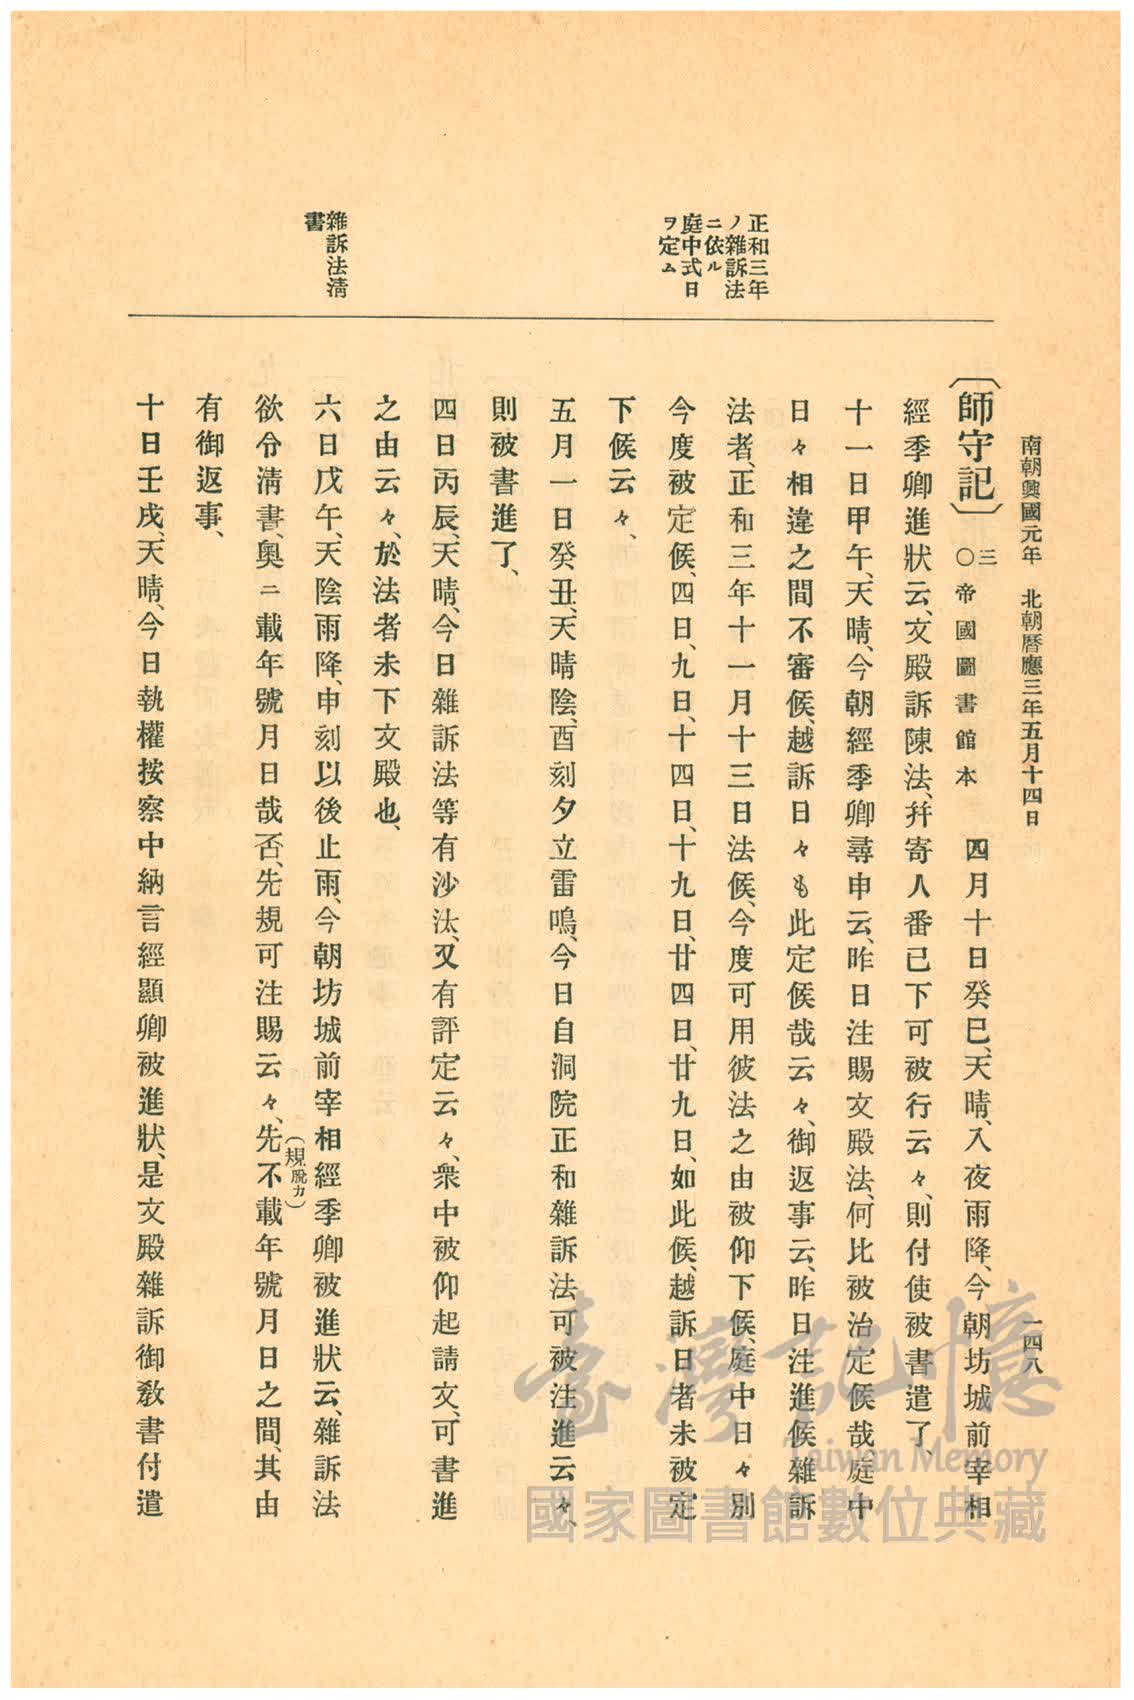 南朝興國元年　北朝曆應三年五月十四日　一四八
正和三年
ノ雜訴法
ニ依ル
庭中式日
ヲ定ム
雜訴法淸
書
〔師守記〕三〇帝國圖書館本　四月十日癸巳、天晴、入夜雨降、今朝坊城前宰相
經季卿進狀云、文殿訴陳法、幷寄人番已下可被行云々、則付使被書遣了、
十一日甲午、天晴、今朝經季卿尋申云、昨日注賜文殿法、何比被治定候哉庭中
日々相違之間不審候、越訴日々も此定候哉云々、御返事云、昨日注進候雜訴
法者、正和三年十一月十三日法候、今度可用彼法之由被仰下候、庭中日々別
今度被定候、四日、九日、十四日、十九日、廿四日、廿九日、如此候、越訴日者未被定
下候云々、
五月一日癸丑、天晴陰、酉刻夕立雷鳴、今日自洞院正和雜訴法可被注進云々、
則被書進了、
四日丙辰、天晴、今日雜訴法等有沙汰、又有評定云々、衆中被仰起請文、可書進
之由云々、於法者未下文殿也、
六日戊午、天陰雨降、申刻以後止雨、今朝坊城前宰相經季卿被進狀云、雜訴法
欲令淸書、奧ニ載年號月日哉否、先規可注賜云々、先(規脫カ)不載年號月日之間、其由
有御返事、
十日壬戌、天晴、今日執權按察中納言經顯卿被進狀、是文殿雜訴御敎書付遣
臺灣記憶
Taiwan Memory
國家圖書館數位典藏